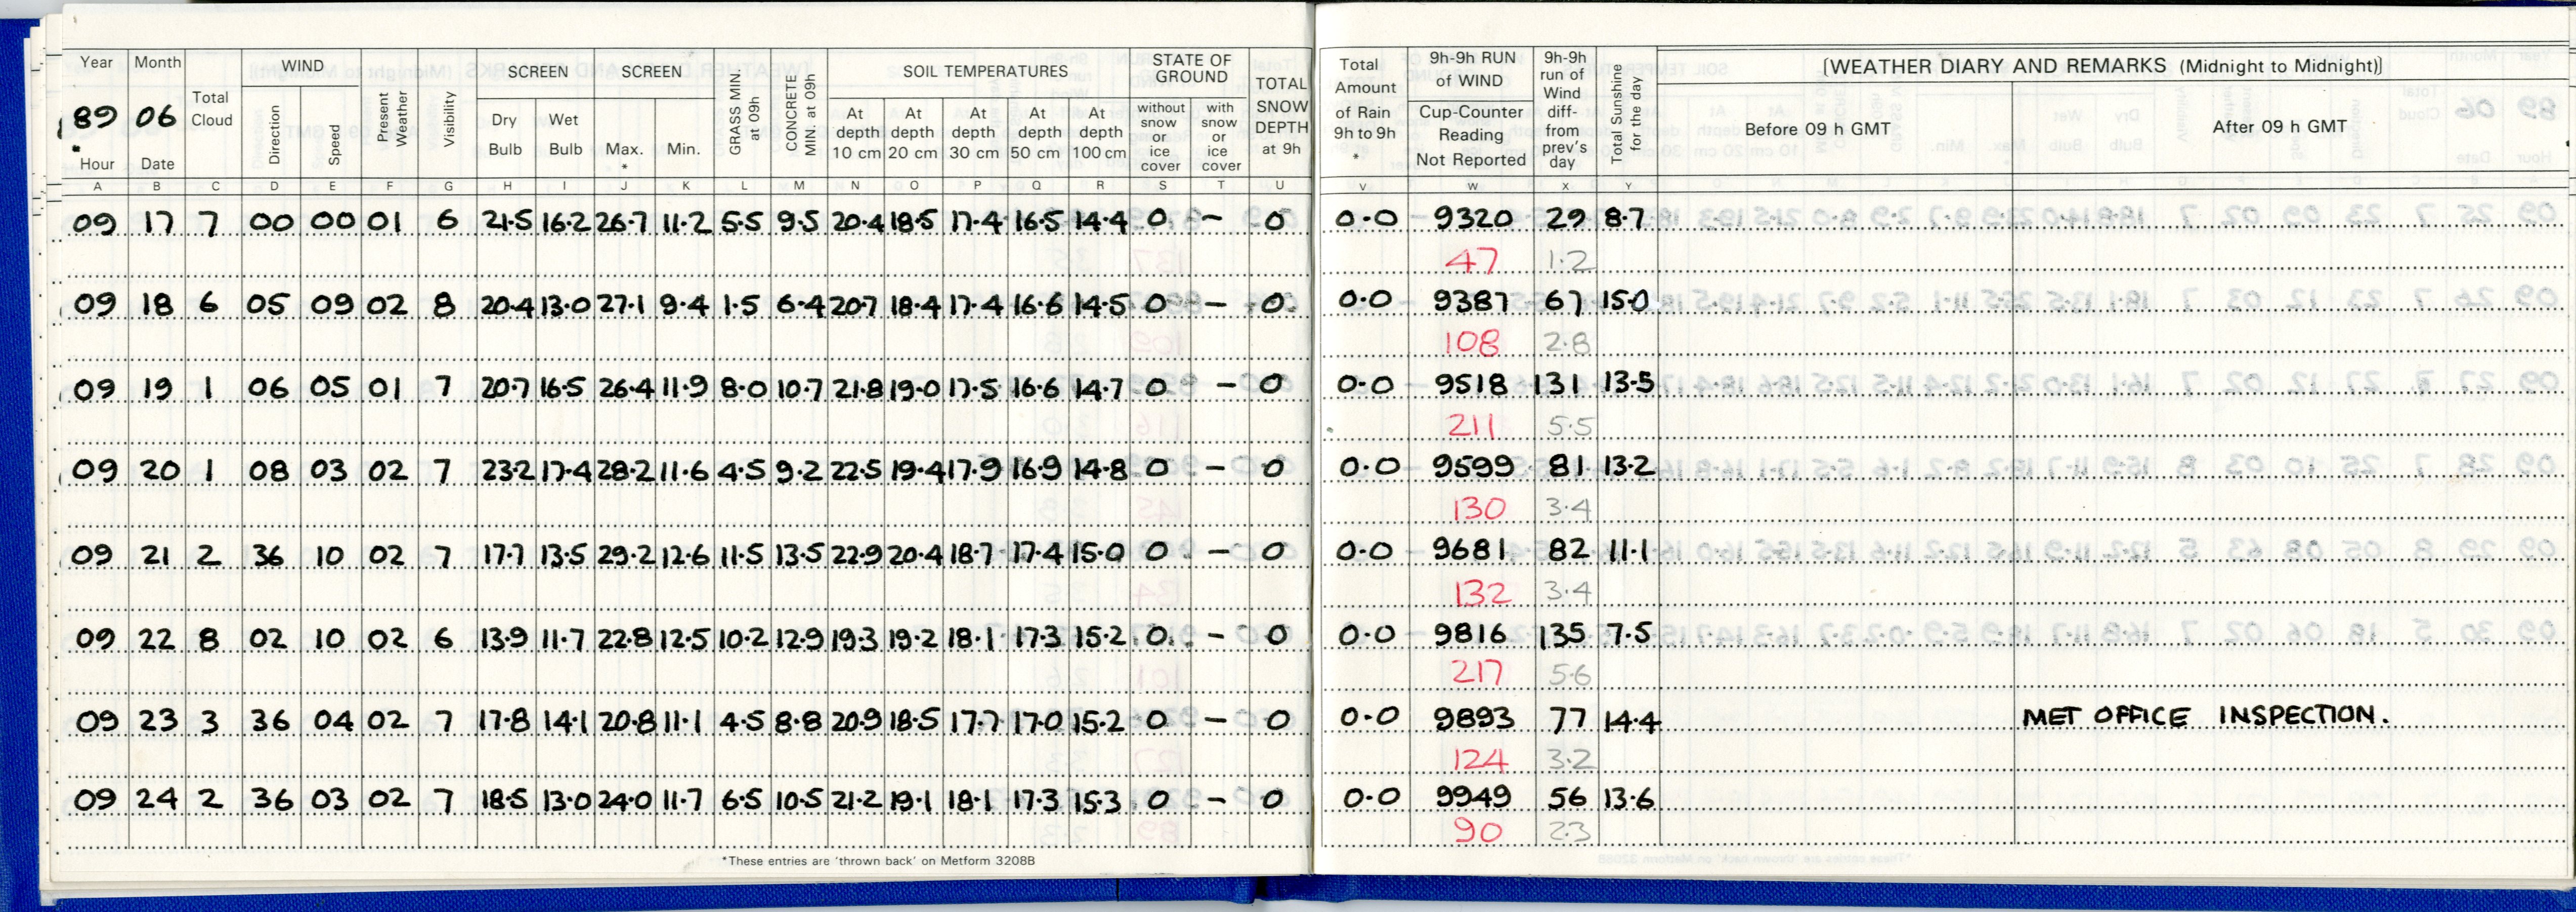 Year Month WIND SCREEN SCREEN SOIL TEMPERATURES STATE OF GROUND
89 06 Total Cloud Direction Speed Present Weather Visibility Dry Bulb Wet Bulb Max. * Min. GRASS MIN. at 09h CONCRETE MIN. at 09h At depth 10 cm At depth 20 cm At depth 30 cm At depth 50 cm At depth 100 cm without snow or ice cover with snow or ice cover TOTAL SNOW DEPTH at 9h
Hour Date
Total Amount of Rain 9h to 9h * 9h-9h RUN of WIND Cup-Counter Reading Not Reported 9h-9h run of Wind diff- from prev's day Total Sunshine for the day [WEATHER DIARY AND REMARKS (Midnight to Midnight)]
Before 09 h GMT After 09 h GMT
A B C D E F G H I J K L M N O P Q R S T U V W X Y
09 17 7 00 00 01 6 21.5 16.2 26.7 11.2 5.5 9.5 20.4 18.5 17.4 16.5 14.4 0 - 0 0.0 9320 29 8.7
47 1.2
09 18 6 05 09 02 8 20.4 13.0 27.1 9.4 1.5 6.4 20.7 18.4 17.4 16.6 14.5 0 - 0 0.0 9387 67 15.0
108 2.8
09 19 1 06 05 01 7 20.7 16.5 26.4 11.9 8.0 10.7 21.8 19.0 17.5 16.6 14.7 0 - 0 0.0 9518 131 13.5
211 5.5
09 20 1 08 03 02 7 23.2 17.4 28.2 11.6 4.5 9.2 22.5 19.4 17.9 16.9 14.8 0 - 0 0.0 9599 81 13.2
130 3.4
09 21 2 36 10 02 7 17.7 13.5 29.2 12.6 11.5 13.5 22.9 20.4 18.7 17.4 15.0 0 - 0 0.0 9681 82 11.1
132 3.4
09 22 8 02 10 02 6 13.9 11.7 22.8 12.5 10.2 12.9 19.3 19.2 18.1 17.3 15.2 0 - 0 0.0 9816 135 7.5
217 5.6
09 23 3 36 04 02 7 17.8 14.1 20.8 11.1 4.5 8.8 20.9 18.5 17.7 17.0 15.2 0 - 0 0.0 9893 77 14.4 MET OFFICE INSPECTION.
124 3.2
09 24 2 36 03 02 7 18.5 13.0 24.0 11.7 6.5 10.5 21.2 19.1 18.1 17.3 15.3 0 - 0 0.0 9949 56 13.6
90 2.3
*These entries are 'thrown back' on Metform 3208B